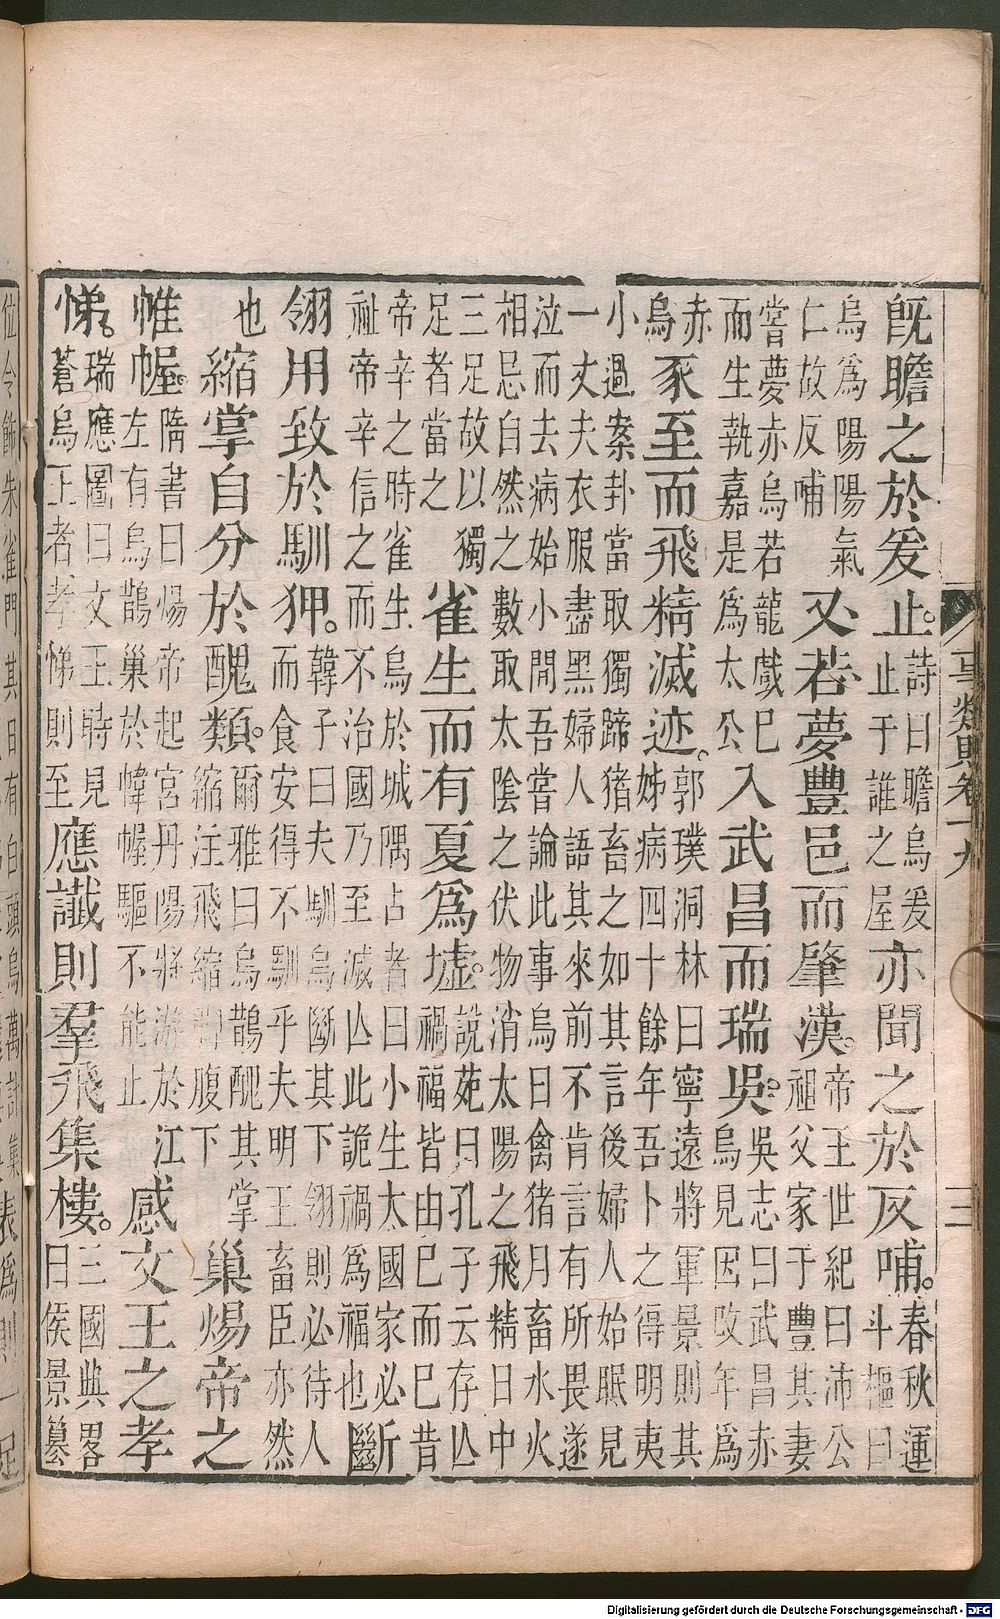 事類賦卷十九
三
既瞻之於爰止。詩曰瞻烏爰止于誰之屋亦聞之於反哺。春秋運斗樞曰
烏爲陽陽氣仁故反哺又若夢豐邑而肇漢。帝王世紀曰沛公祖父家于豐其妻
嘗夢赤烏若龍戲巳而生執嘉是爲太公入武昌而瑞吳。吳志曰武昌赤烏見因攺年爲
赤烏豕至而飛精滅迹。郭璞洞林曰寧遠將軍景則其姊病四十餘年吾卜之得明夷
小過案卦當取獨蹄猪畜之如其言後婦人始眠見一丈夫衣服盡黑婦人語其來前不肯言有所畏遂
泣而去病始小間吾嘗論此事烏日禽猪月畜水火相忌自然之數取太陰之伏物消太陽之飛精日中
三足故以獨足者當之雀生而有夏爲墟。說苑曰孔子云存亾禍福皆由巳而巳昔
帝辛之時雀生烏於城隅占者曰小生太國家必祉帝辛信之而不治國乃至滅亾此詭禍爲福也斷
翎用致於馴狎。韓子曰夫馴烏斷其下翎則必待人而食安得不馴乎夫明王畜臣亦然
也縮掌自分於醜類。爾雅曰烏鵲醜其掌縮注飛縮脚腹下巢煬帝之
帷幄。隋書曰煬帝起宮丹陽將游於江左有烏鵲巢於幃幄驅不能止感文王之孝
悌。瑞應圖曰文王時見蒼烏王者孝悌則至應讖則羣飛集樓。三國典畧曰侯景簒
位令飾朱雀門其日有白頭烏萬計集
Digitalisierung gefördert durch die Deutsche Forschungsgemeinschaft - DFG